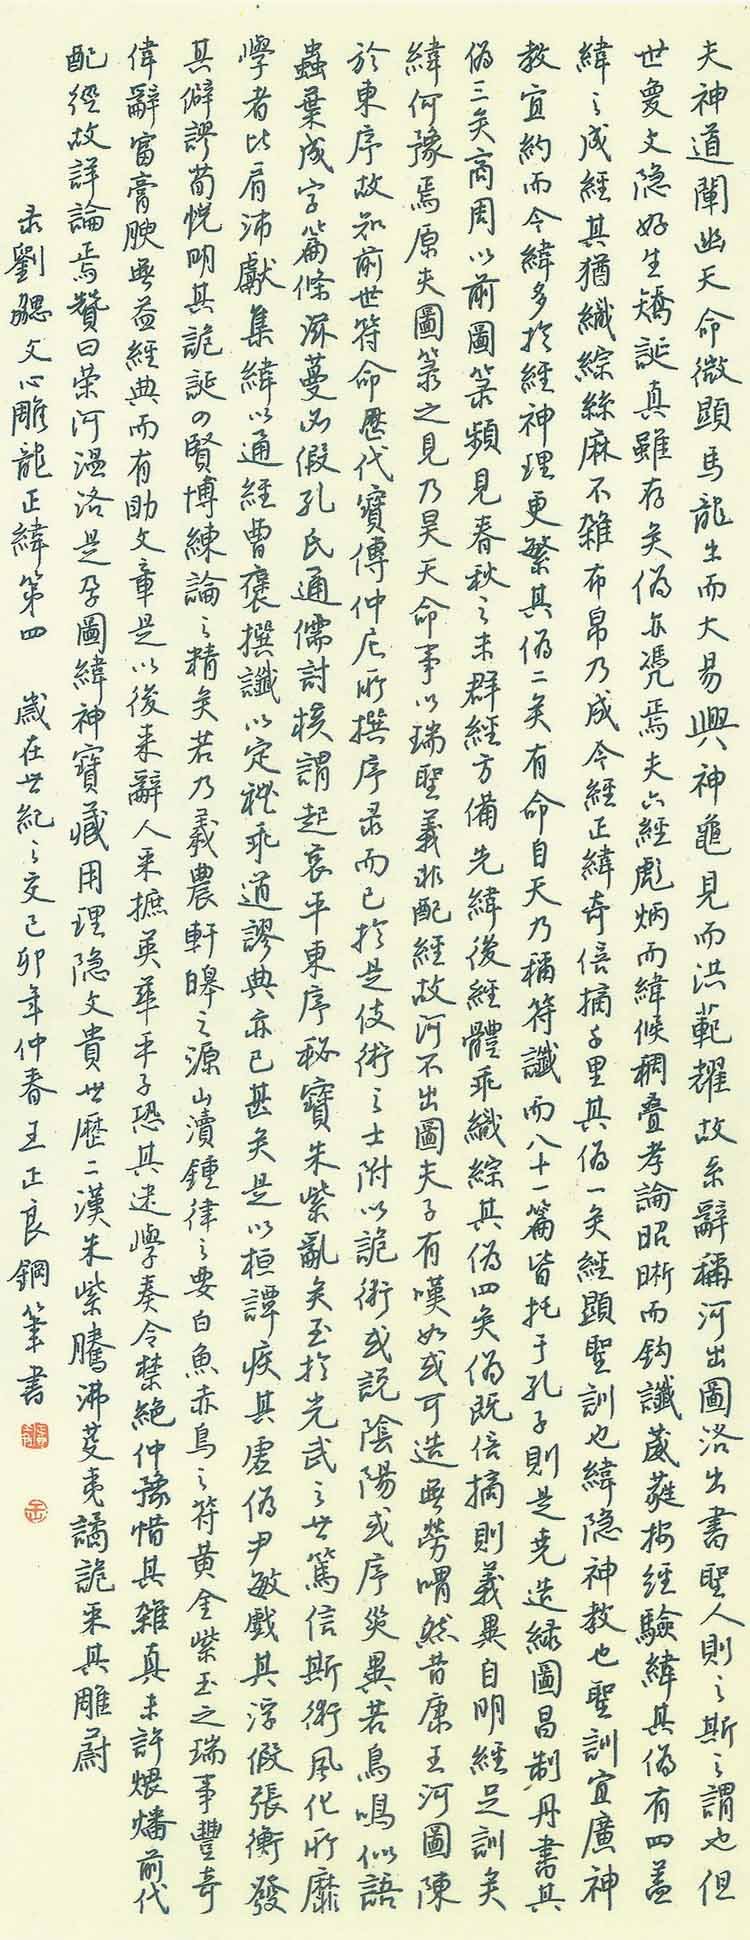 夫神道闡幽天命微顯馬龍出而大易興神龜見而洪範耀故系辭稱河出圖洛出書聖人則之斯之謂也但
世敻文隐好生矯誕真雖存矣偽亦憑焉夫六經彪炳而緯候稠疊孝論昭晰而鈎讖葳蕤按經驗緯其偽有四蓋
緯之成經其猶織綜絲麻不雜布帛乃成今經正緯奇倍擿千里其偽一矣經顯聖訓也緯隐神教也聖訓宜廣神
教宜約而今緯多於經神理更繁其偽二矣有命自天乃稱符讖而八十一篇皆托于孔子則是堯造緑圖昌制丹書其
偽三矣商周以前圖箓頻見春秋之末群經方備先緯後經體乖織綜其偽四矣偽既倍摘則義異自明經足訓矣
緯何豫焉原夫圖箓之見乃昊天命事以瑞聖義非配經故河不出圖夫子有嘆如或可造無勞喟然昔康王河圖陳
於東序故知前世符命歷代寶傳仲尼所撰序录而已於是伎術之士附以詭術或説陰陽或序災異若鳥鳴似語
蟲葉成字篇條滋蔓必假孔氏通儒討核謂起哀平東序秘寶朱紫亂矣至於光武之世篤信斯術風化所靡
學者比肩沛獻集緯以通經曹褒撰讖以定禮乖道謬典亦已甚矣是以桓譚疾其虚偽尹敏戲其浮假張衡發
其僻謬荀悦明其詭誕四賢博練論之精矣若乃羲農軒皞之源山瀆鍾律之要白魚赤烏之符黄金紫玉之瑞事豐奇
偉辭富膏腴無益經典而有助文章是以後来辭人采摭英華平子恐其迷學奏令禁絶仲豫惜其雜真未許煨燔前代
配徑故詳論焉贊曰荣河温洛是孕圖緯神寶藏用理隐文貴世歷二漢朱紫騰沸芟夷譎詭采其雕蔚
录劉勰文心雕龍正緯第四　歲在世紀之交己卯年仲春王正良鋼筆書